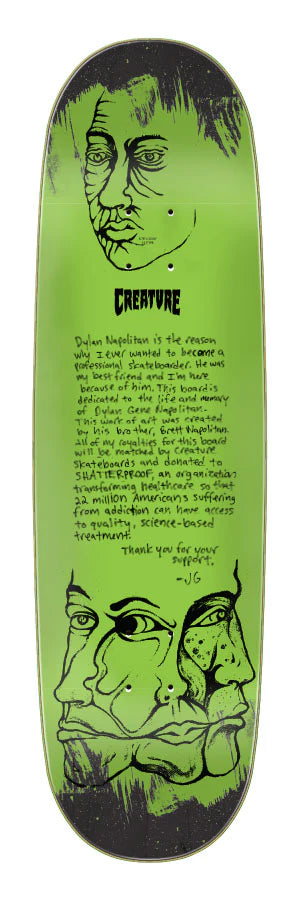 CREATURE
Dylan Napolitan is the reason
why I ever wanted to become a
professional skateboarder. He was
my best friend and I'm here
because of him. This board is
dedicated to the life and memory
of Dylan Gene Napolitan.
This work of art was created
by his brother, Brett Napolitan.
All of my royalties for this board
will be matched by Creature
Skateboards and donated to
SHATTERPROOF, an organization
transforming healthcare so that
22 million Americans suffering
from addiction can have access
to quality, science-based
treatment.
Thank you for your
support.
-JG